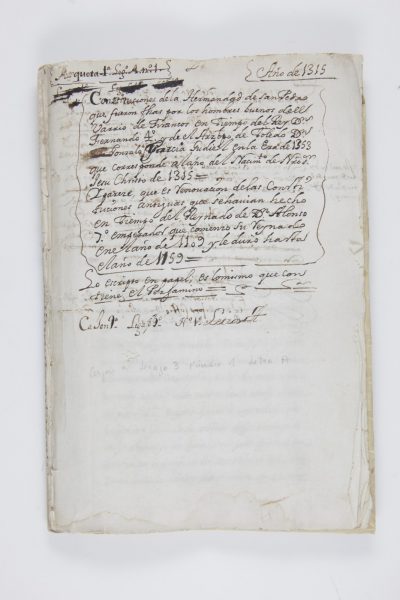 Año de 1315
Constituciones de la Hermandad de San Pedro
que fueron fhas por los hombres buenos del
Varrio de Francos en Tiempo del Rey Dn
Fernando 4º y de el Arzpo de Toledo Dn
Gonzalo Garcia Gudiel en la Era de 1353
que corresponde al año del Nacimto de Nro Sr
Jesu Christo de 1315
y parece, que es renovacion de las Consti
tuciones antiguas que se havian hecho
en Tiempo del Reynado de Dn Alonso
7º emperador que comenzo su Reynado
en el año de 1109 y le duró hasta
el año de 1159
Lo escripto en papel, es lo mismo que con
tiene el Pergamino
Caxon 1º Lego 1º Nº 1º Letra A